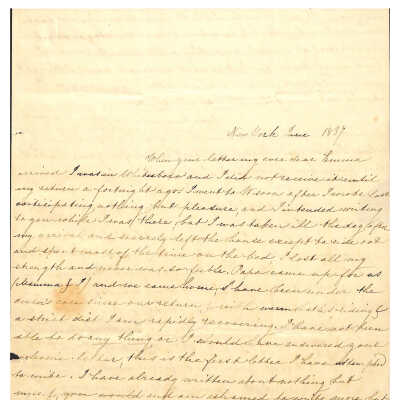 New York June 1837
When your letter my ever dear Emma
arrived I was at Whitesboro and I did not receive it until
my return a fortnight ago. I went to after I wrote last
anticipating nothing but pleasure, and I intended writing
to you while I was there, but I was taken ill the day after
my arrival and scarcely left the house except to ride out
and spent most of the time on the bed, I lost all my
strength and never was so feeble. Papa came up for us
Mamma & I and we came home, I have been under the
care since our return, and with riding &
a strict diet I am rapidly recovering. I have not been
able to do any thing or I would have answered your
letter, this is the first letter I have attempted
to write. I have already written about nothing but
myself, you would and am ashamed to write more but